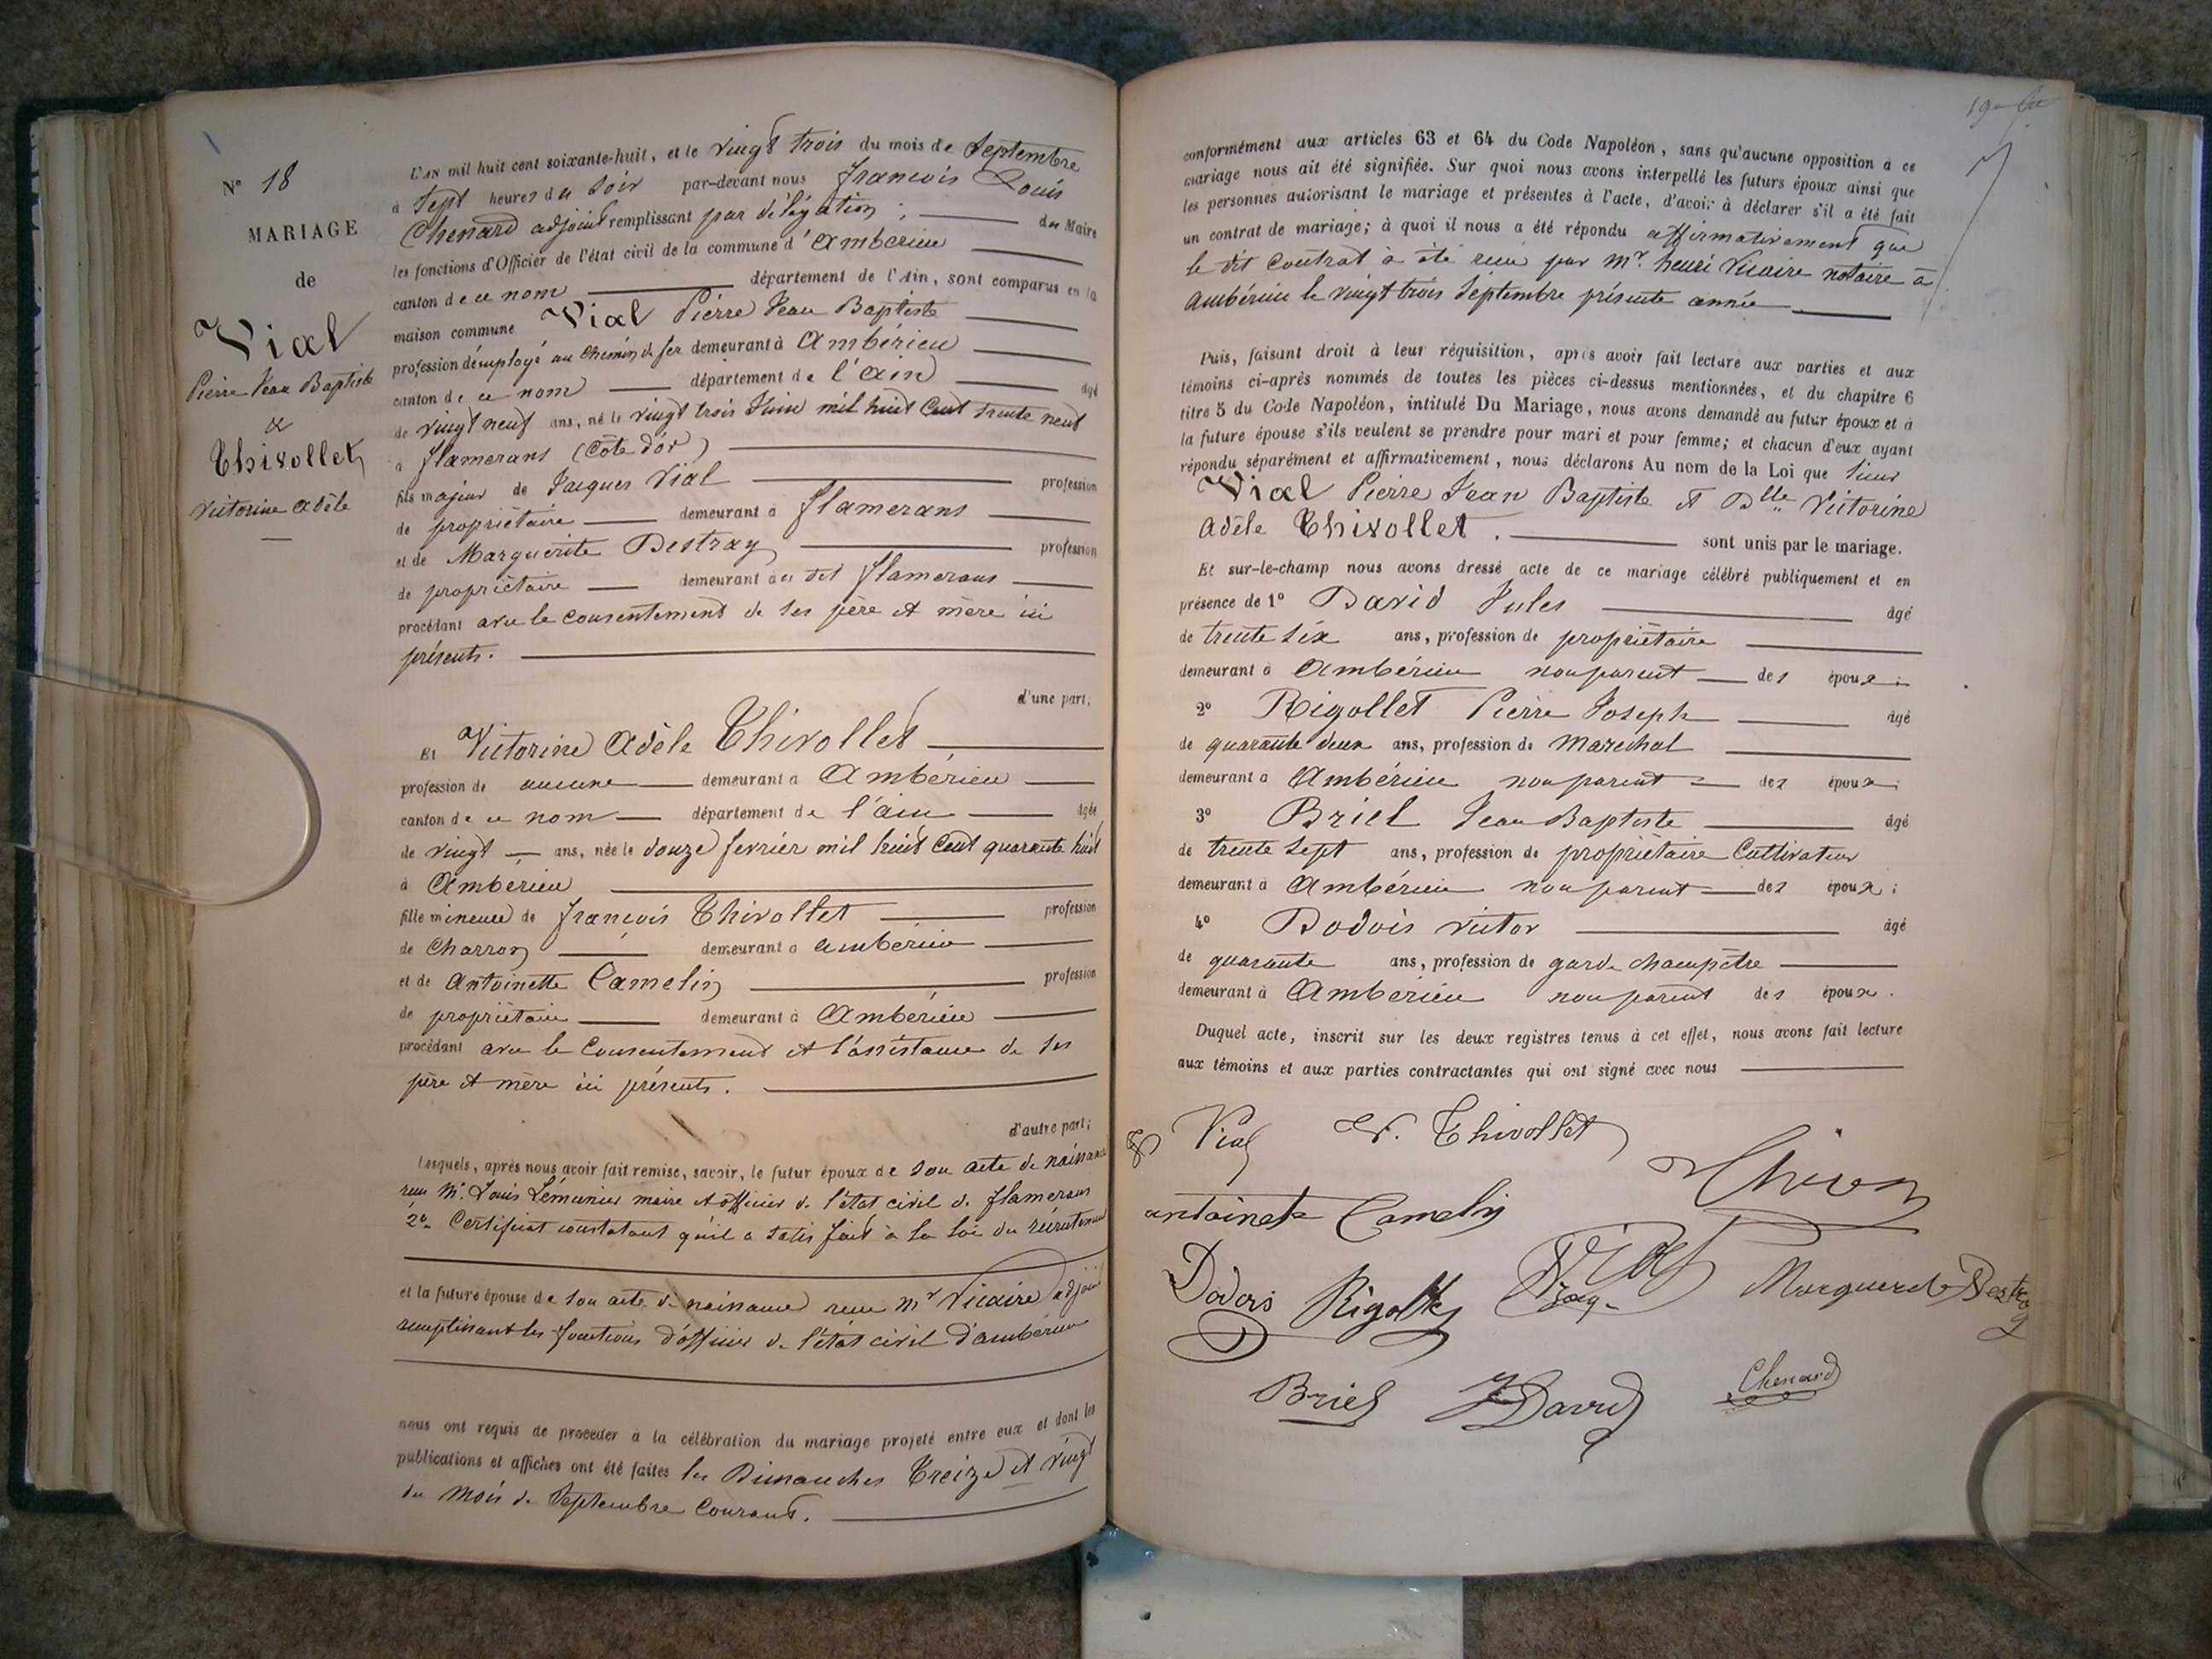 N° 18
MARIAGE
de
Vial
Pierre Jean Baptiste
&
Thivollet
Victorine Adèle
L'AN mil huit cent soixante-huit, et le vingt trois du mois de Septembre
à Sept heures du Soir par-devant nous françois Louis
Chenard adjoint remplissant par délégation ; du Maire
les fonctions d'Officier de l'état civil de la commune d'Ambérieu
canton de ce nom département de l'Ain, sont comparus en la
maison commune Vial Pierre Jean Baptiste
profession d'employé au Chemin de fer demeurant à Ambérieu
canton de ce nom département de l'Ain âgé
de vingt neuf ans, né le vingt trois Juin mil huit Cent trente neuf
à flamerans (Côte d'or)
fils majeur de Jacques Vial profession
de propriétaire demeurant à flamerans
et de Marguerite Destray profession
de propriétaire demeurant au dit flamerans
procédant avec le consentement de ses père et mère ici
présents.
d'une part;
Et Victorine Adèle Thivollet
profession de aucune demeurant à Ambérieu
canton de ce nom département de l'ain âgée
de vingt ans, née le douze fevrier mil huit Cent quarante huit
à Ambérieu
fille mineure de françois Thivollet profession
de Charron demeurant à ambérieu
et de Antoinette Camelin profession
de propriétaire demeurant à Ambérieu
procédant avec le Consentement et l'assistance de ses
père et mère ici présents.
d'autre part;
Lesquels, après nous avoir fait remise, savoir, le futur époux de son acte de naissance
reçu Mr. Louis Lémunier maire et officier de l'état civil de flamerans
2° Certificat constatant qu'il a satisfait à la loi du recrutement
et la future épouse de son acte de naissance reçu Mr Vicaire adjoint
remplissant les fonctions d'officier de l'état civil d'ambérieu
nous ont requis de procéder à la célébration du mariage projeté entre eux et dont les
publications et affiches ont été faites les Dimanches Treize et vingt
du mois de Septembre Courant.
conformément aux articles 63 et 64 du Code Napoléon, sans qu'aucune opposition à ce
mariage nous ait été signifiée. Sur quoi nous avons interpellé les futurs époux ainsi que
les personnes autorisant le mariage et présentes à l'acte, d'avoir à déclarer s'il a été fait
un contrat de mariage; à quoi il nous a été répondu affirmativement que
le dit Contrat à été reçu par Mr. henri Vicaire notaire à
ambérieu le vingt trois Septembre présente année
Puis, faisant droit à leur réquisition, après avoir fait lecture aux parties et aux
témoins ci-après nommés de toutes les pièces ci-dessus mentionnées, et du chapitre 6
titre 5 du Code Napoléon, intitulé Du Mariage, nous avons demandé au futur époux et à
la future épouse s'ils veulent se prendre pour mari et pour femme; et chacun d'eux ayant
répondu séparément et affirmativement, nous déclarons Au nom de la Loi que Sieur
Vial Pierre Jean Baptiste et Dlle Victorine
Adèle Thivollet. sont unis par le mariage.
Et sur-le-champ nous avons dressé acte de ce mariage célébré publiquement et en
présence de 1° David Jules âgé
de trente six ans, profession de propriétaire
demeurant à Ambérieu non parent des époux;
2° Rigollet Pierre Joseph âgé
de quarante deux ans, profession de Marechal
demeurant à Ambérieu non parent des époux;
3° Briel Jean Baptiste âgé
de trente Sept ans, profession de propriétaire Cultivateur
demeurant à Ambérieu non parent des époux;
4° Dodois victor âgé
de quarante ans, profession de garde champêtre
demeurant à Ambérieu non parent des époux.
Duquel acte, inscrit sur les deux registres tenus à cet effet, nous avons fait lecture
aux témoins et aux parties contractantes qui ont signé avec nous
Vial V. Thivollet
antoinete Camelin
Dodois Rigollet Vial Jaq. Marguerite Destray
Briel J David Chenard